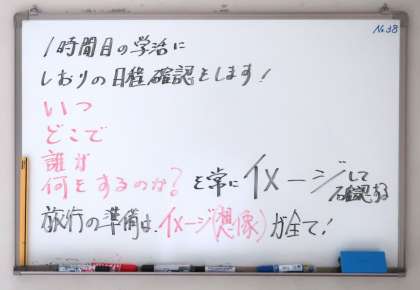 No.38
1時間目の学活に
しおりの日程確認をします!
いつ
どこで
誰が
何をするのか?を常にイメージして確認する
旅行の準備はイメージ(想像)が全て!